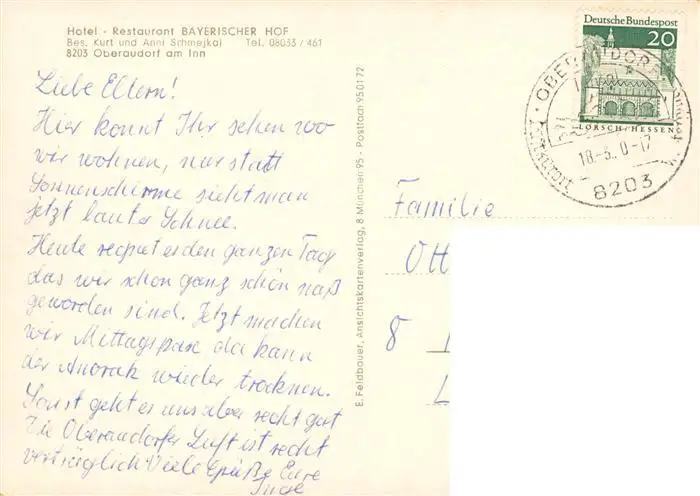 Hotel - Restaurant BAYERISCHER HOF
Bes. Kurt und Anni Schmejkal Tel. 08033 / 461
8203 Oberaudorf am Inn
Liebe Eltern!
Hier könnt Ihr sehen wo
wir wohnen, nur statt
Sonnenschirme sieht man
jetzt lauter Schnee.
Heute regnet es den ganzen Tag
das wir schon ganz schön naß
geworden sind. Jetzt machen
wir Mittagspase da kann
der Anorak wieder trocknen.
Sonst geht es uns aber recht gut
Die Oberaudorfer Luft ist recht
verträglich Viele Grüße Eure
Inge
E. Feldbauer, Ansichtskartenverlag, 8 München 95 - Postfach 95 01 72
Deutsche Bundespost
20
LORSCH/HESSEN
OBERAUDORF
18.-3. 0-17
8203
Familie
Ott
8
L